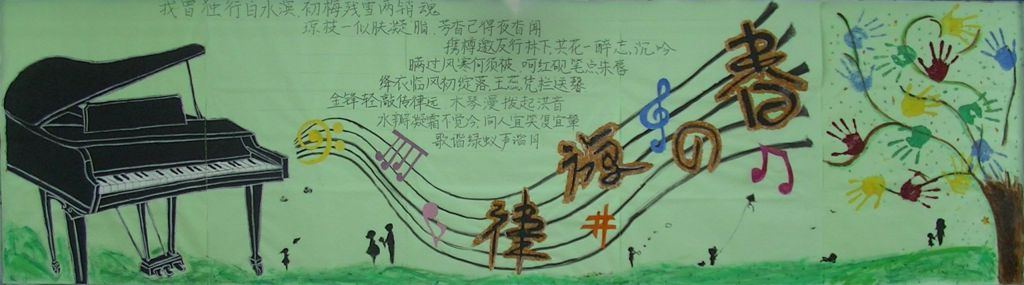 我曾独行白水滨,初梅残雪两销魂
琼枝一似肤凝脂,芳香已得夜杳闻
携樽邀友行林下,共花一醉忘沉吟
瞒过风寒何须破,呵红砚笔点朱唇
绛衣临风初绽落,玉蕊凭拦送馨
金锋轻敲传律运 木琴漫拨起洪音
凝霜不觉冷,问人宜买复宜颦
歌谐绿蚁声谐月
春の旋律